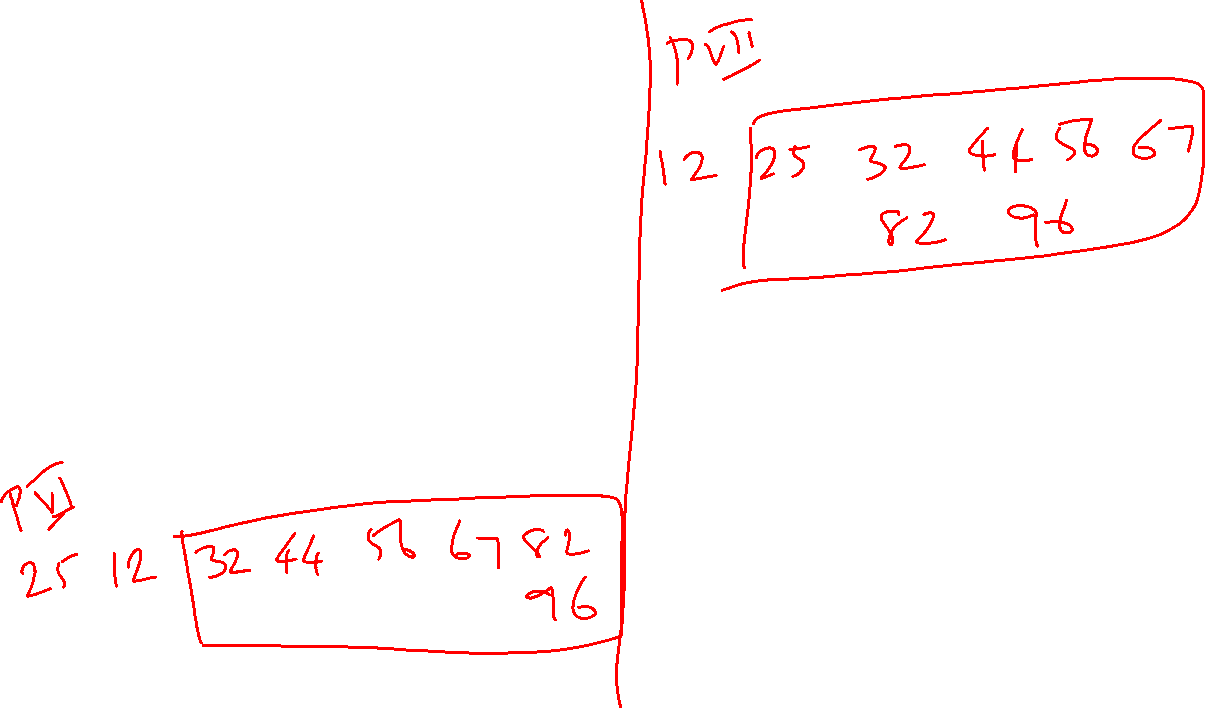 P VI
25 12 32 44 56 67 82
96
P VII
12 25 32 44 56 67
82 96